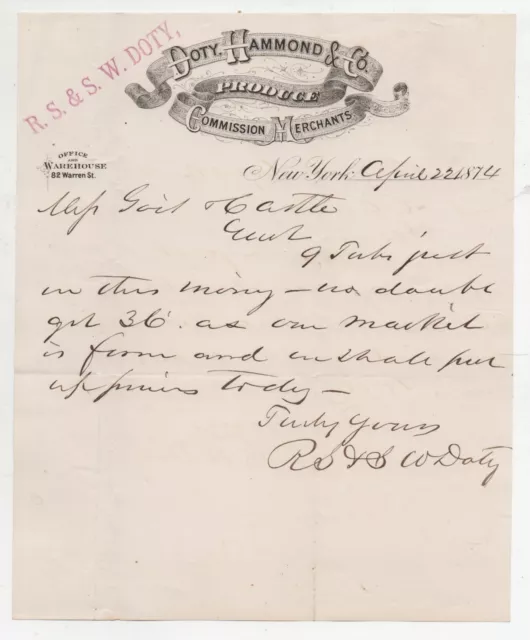 R. S. & S. W. DOTY,
DOTY, HAMMOND & CO.
PRODUCE
COMMISSION MERCHANTS
OFFICE
AND
WAREHOUSE
82 Warren St.
New York April 22 1874
Castle
Gent
9 Tubs just
in this morng — no doubt
get 36¢. as our market
is firm and we shall put
up prices today —
Truly Yours
R S & S W Doty